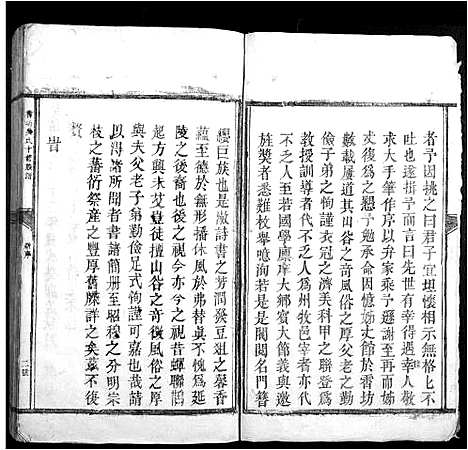 者予因挑之曰君子宜坦懷相示無格格不
吐也遂指予而言曰先世有幸得遇
求大手筆作序以弁家乘予遜謝至再
丈復為之懇予勉承命因憶姊丈館於膏坊
數載屢道其山谷之奇風俗之厚父老之勤
子弟之恂謹衣冠之濟美科甲之聯登為
教授訓導者代不乏人為州牧邑宰者亦代
不乏人至若國學廩庠大鄉賓大僎節義與邀
旌獎者悉難枚舉噫洵若是是閥閱名門簪
纓巨族也是揪詩書之芳潤發豆俎之馨香
蘊至德於無形播休風於弗替不愧為延
陵之後裔也後之視今亦今之視昔蟬聯鵲
起方興未艾豈徒擅山谷之奇徵風俗之厚
與夫父老子弟勤儉恂謹而已哉姊丈嘉也哉請
以得諸所聞者書諸簡册至昭穆之分明宗
枝之蕃衍祭產之豐厚舊牒詳之矣茲不復
贅
旹
新序
二